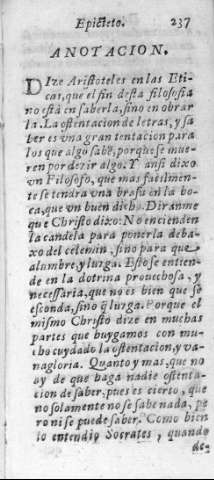 Epicteto. 237
ANOTACION.
DIze Aristoteles en las Eti-
cas, que el fin desta filosofia
no està en saberla, sino en obrar
la. La ostentacion de letras, y sa
ber es vna gran tentacion para
los que algo sabẽ, porq̃ se se mue-
ren por dezir algo. Y ansi dixo
vn Filosofo, que mas facilmen-
te se tendra vna brasa en la bo-
ca, que vn buen dicho. Diranme
que Christo dixo: No encienden
la candela para ponerla deba-
xo del celemin, sino para que
alumbre, y luzga. Esto se entien-
de en la dotrina prouechosa, y
necessaria, que no es bien que se
esconda, sino q̃ luzga. Porque el
mismo Christo dize en muchas
partes que huygamos con mu-
cho cuydado la ostentacion, y va-
nagloria. Quanto y mas, que no
ay de que haga nadie ostenta-
cion de saber, pues es cierto, que
no solamente no se sabe nada, pe
ro ni se puede saber. Como bien
lo entendio Socrates, quando
de-